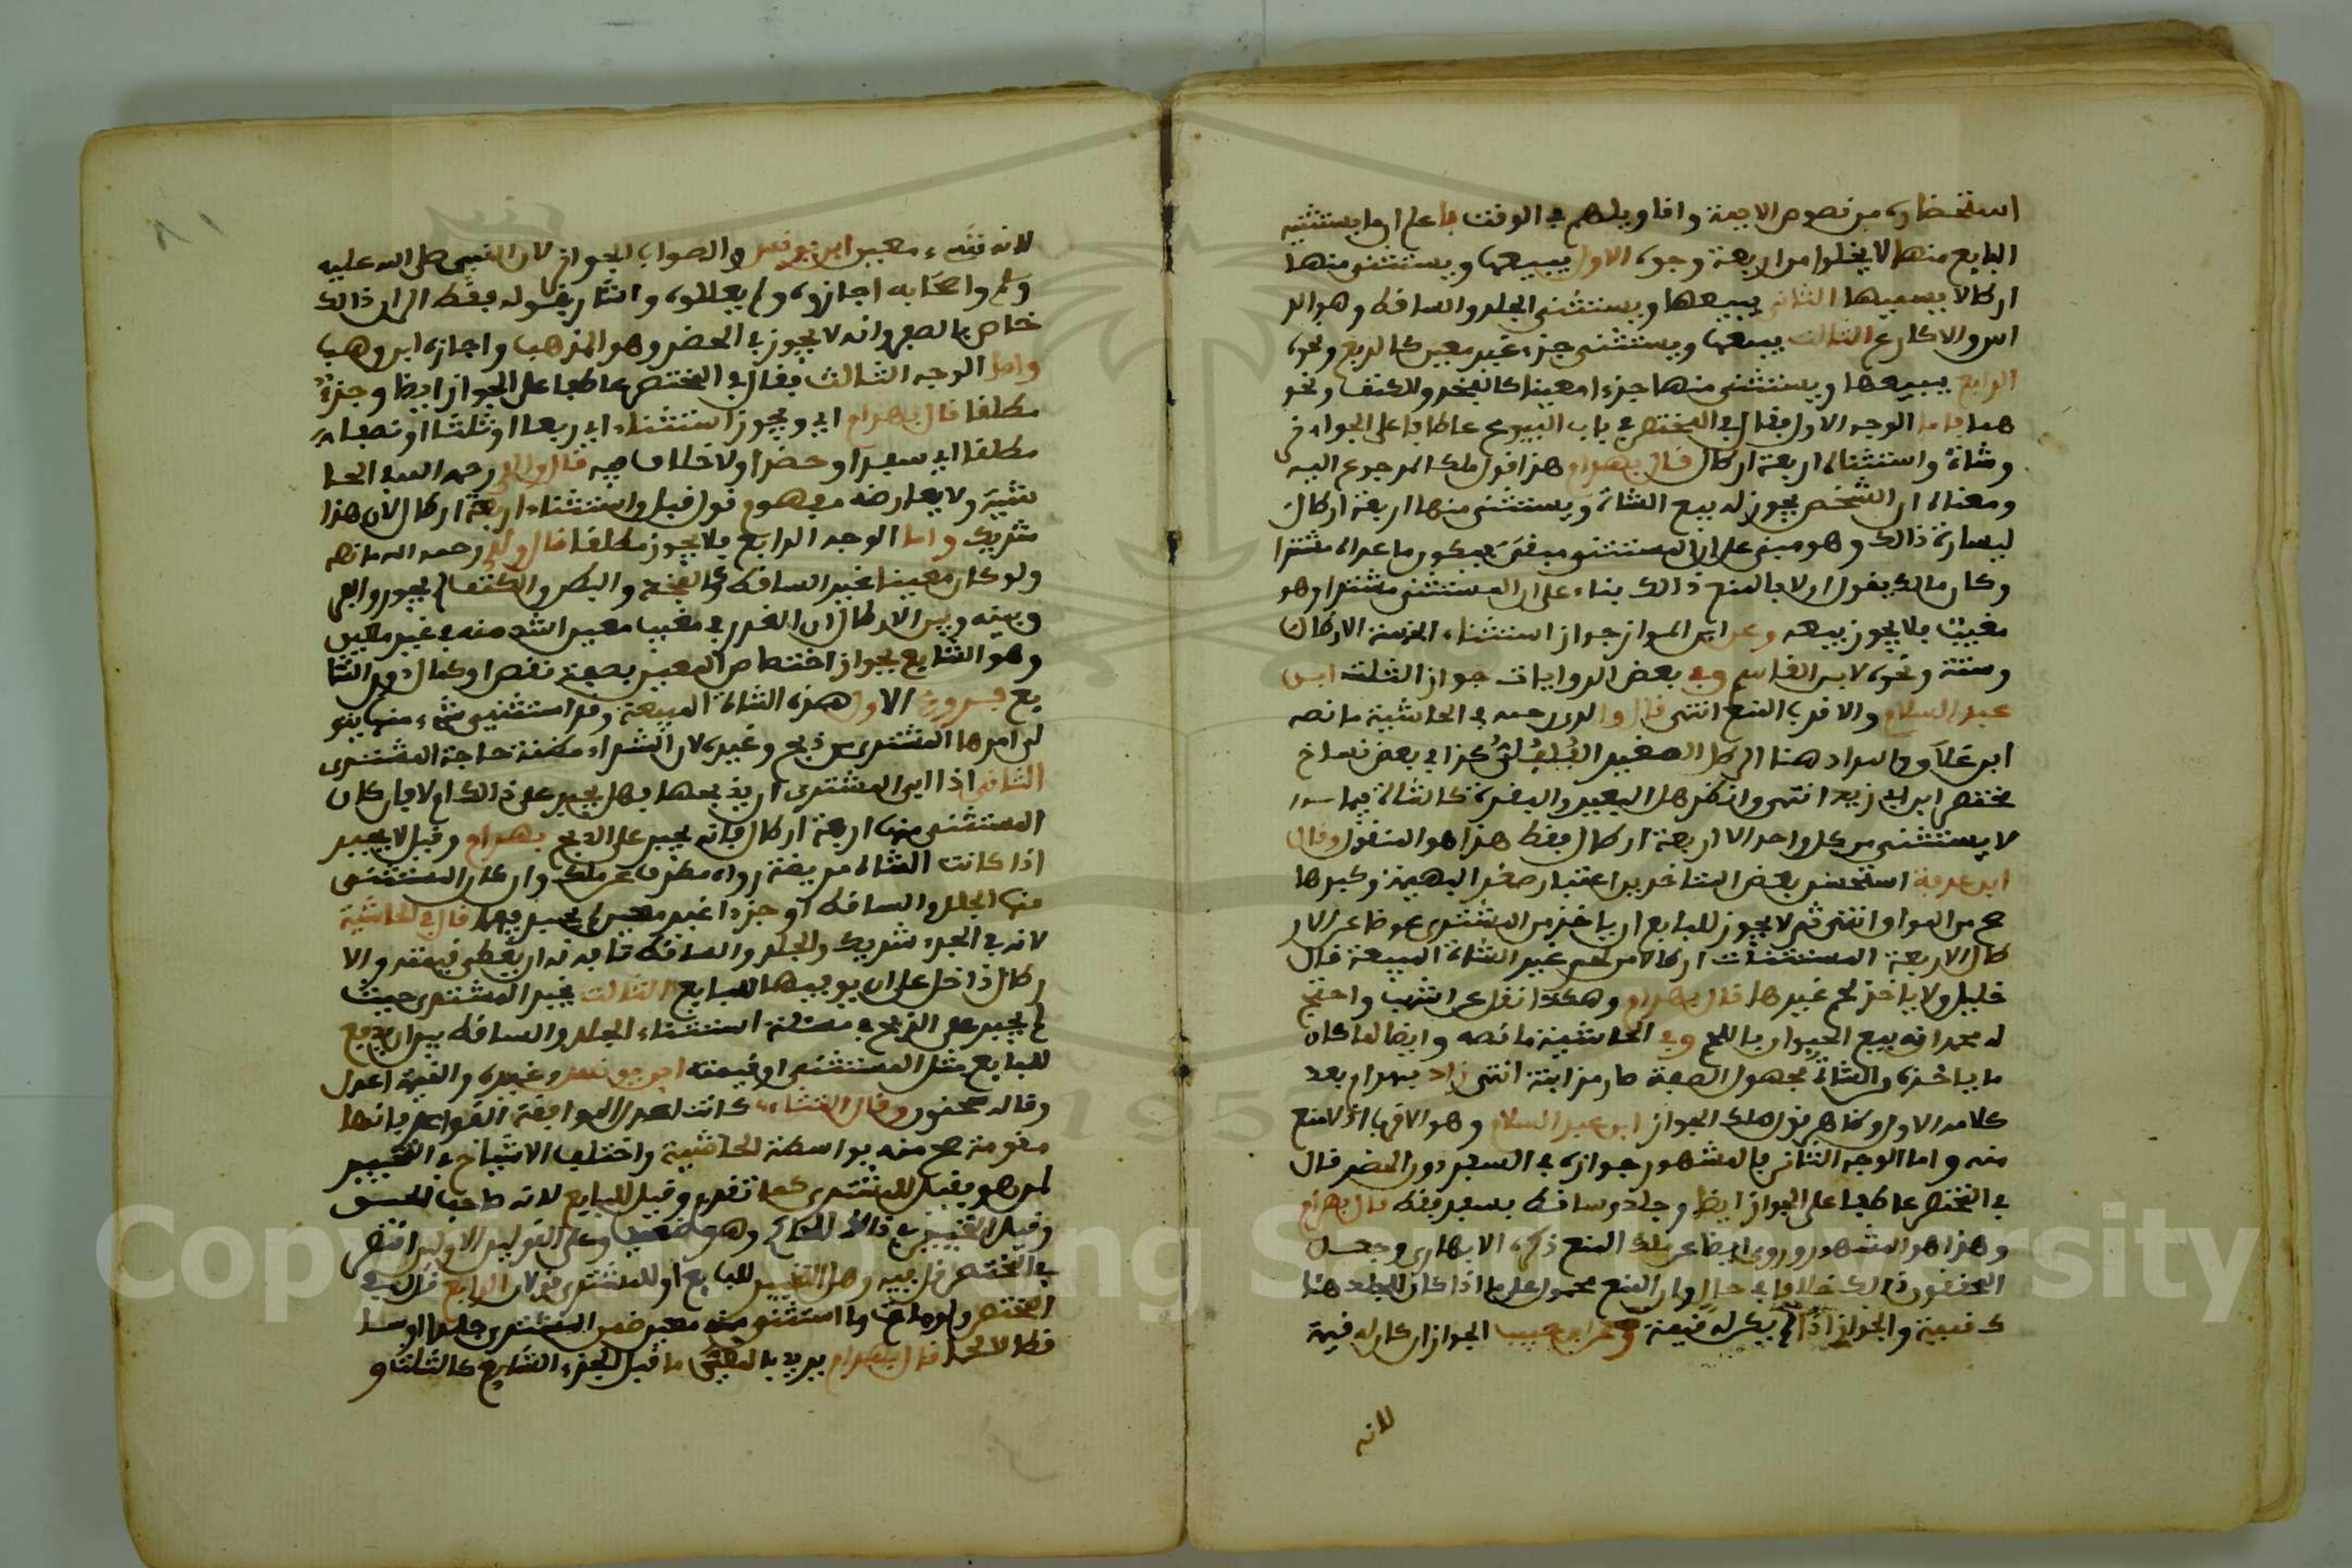 استحضاره من نصوص الايمة واقاويلهم في الوقت فاعلم ان ما يستثنيه
البايع منها لا يخلوا من اربعة وجوه الاول يبيعها ويستثنى منها
ارطالا يسميها الثاني يبيعها ويستثنى الجلد والساقط وهو الر
اس والاكارع الثالث يبيعها ويستثنى جزء غير معين كالربع ونحوه
الرابع يبيعها ويستثنى منها جزءا معينا كالفخذ والكتف ونحو
هما فاما الوجه الاول فقال في المختصر في باب البيوع عاطفا على الجواز
وشاة واستثناء اربعة ارطال قال بهرام هذا قول ملك المرجوع اليه
ومعناه ان الشخص يجوز له بيع الشاة ويستثنى منها اربعة ارطال
ليسارة ذالك وهو مبني على ان المستثنى مبقى فيكون ما عداه مشترا
وكان مالك يقول اولا بالمنع ذالك بناء على ان المستثنى مشترا وهو
مغيب فلا يجوز بيعه وعن ابن المواز جواز استثناء الخمسة الارطال
وستة ونحوه لابن القاسم وفي بعض الروايات جواز الثلث ابن
عبد السلام والاقرب المنع انتهى قال والدي رحمه في الحاشية ما نصه
ابن علاق والمراد هنا الرطل الصغير الفلفلي كذا في بعض نساخ
مختصر ابن ابي زيد انتهى وانظر هل البعير والبقرة كالشاة
لا يستثنى من كل واحد الا اربعة ارطال فقط هذا هو المنقول وقال
ابن عرفة استحسن بعض المتاخرين اعتبار صغر البهيمة وكبرها
صح من المواق انتهى ثم لا يجوز للبايع ان ياخذ من المشتري عوضا عن الار
طال الاربعة المستثنات ارطالا من لحم غير الشاة المبيعة قال
خليل ولا ياخذ لحم غيرها قال بهرام وهكذا نقل عن اشهب واحتج
له محمد انه بيع الحيوان باللحم وفي الحاشية ما نصه وايضا لما كان
ما ياخذه والشاة مجهول الصفة صار مزابنة انتهى زاد بهرام بعد
كلامه الاول وظاهر قول ملك الجواز ابن عبد السلام وهو الاقرب اذ لا منع
منه واما الوجه الثاني فالمشهور جوازه في السفر دون الحضر قال
في المختصر عاطفا على الجواز ايضا وجلد وساقط بسفر فقط قال بهرام
وهذا هو المشهور وروي ايضا عن ملك المنع ذكره الابهاري وجعل
المحققون ذالك خلافا في حال وان المنع محمول على ما اذا كان للجلد هنا
ك قيمة والجواز اذا لم يكن له قيمة وعن ابن حبيب الجواز ان كان له قيمة
لانه
لانه شيء معين ابن يونس والصواب الجواز لان النبي صلى الله عليه
وسلم واصحابه اجازوه ولم يعللوه واشار بقوله فقط الى ان ذالك
خاص بالسفر وانه لا يجوز في الحضر وهو المذهب واجازه ابن وهب
واما الوجه الثالث فقال في المختصر عاطفا على الجواز ايضا وجزء
مطلقا قال بهرام اي ويجوز استثناء اي ربعا او ثلثا او نصفا
مطلقا اي سفرا او حضرا ولا خلاف فيه قال والدي رحمه الله في الحا
شية ولا يعارضه مفهوم قول قبل واستثناء اربعة ارطال لان هذا
شريك واما الوجه الرابع فلا يجوز مطلقا قال والدي رحمه الله ما نصه
ولو كان معينا غير الساقط كالفخذ والبطن والكتف لم يجز والفر
ق بينه وبين الارطال ان الغرر في مغيب معين اشد منه في غير معين
وهو الشايع لجواز اختصاص المعين بصفة نقص او كمال دون الشا
يع فروع الاول هذه الشاة المبيعة وقد استثنى شيء منها يتو
لى امرها المشتري من ذبح وغيره لان الشراء مظنة حاجة المشتري
الثاني اذا ابى المشتري ان يذبحها فهل يجبر على ذالك ام لا فان كان
المستثنى منها اربعة ارطال فانه يجبر على الذبح بهرام وقيل لا يجبر
اذا كانت الشاة مريضة رواه مطرف عن ملك وان كان المستثنى
منها الجلد والساقط او جزءا غير معين لم يجبر فيهما قال في الحاشية
لانه في الجزء شريك والجلد والساقط شابه له ان يعطى قيمته والا
رطال دخل على ان يوفيها للبايع الثالث يخير المشتري حيث
لم يجبر على الذبح في مسئلة استثناء الجلد والساقط بين ان يدفع
للبايع مثل المستثنى او قيمته ابن يونس وغيره والقيمة اعدل
وقاله سحنون وقال انشاء كانت اعدل لموافقة القواعد فانها
مقومة صح منه بواسطة الحاشية واختلف الاشياخ في التخيير
لمن هو فقيل للمشتري كما تقدم وقيل للبايع لانه صاحب الحق
وقيل التخيير في ذالك للحاكم وهو ضعيف وعلى القولين الاولين اقتصر
في المختصر قال فيه وهل التخيير للبايع او للمشتري قولان الرابع قال في
المختصر ولو مات ما استثنى منه معين ضمن المشتري جلدا وسا
قطا لا لحما قال بهرام يريد بالمعين ما قبل الجزء الشايع كالثلث و